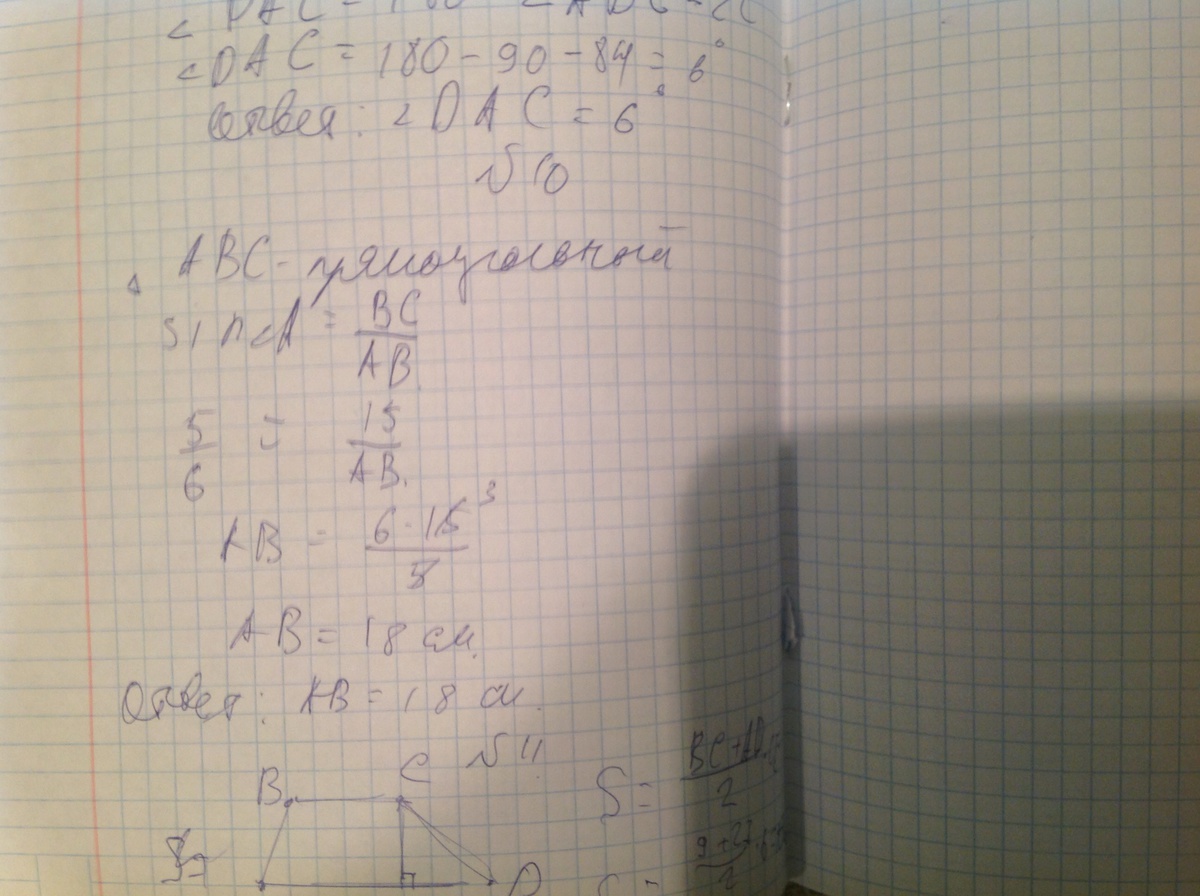 <DAC = 180 - <ADC - <C
<DAC = 180 - 90 - 84 = 6°
Ответ: <DAC = 6°
№10
△ ABC - прямоугольный
sin<A = BC/AB
5/6 = 15/AB.
AB = 6·15/5 3
AB = 18 см.
Ответ: AB = 18 см.
№11
B C
S = BC+AD/2
D
9+27/2